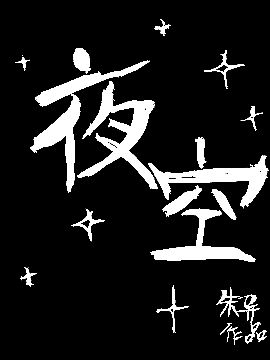 夜空
朱异
作品